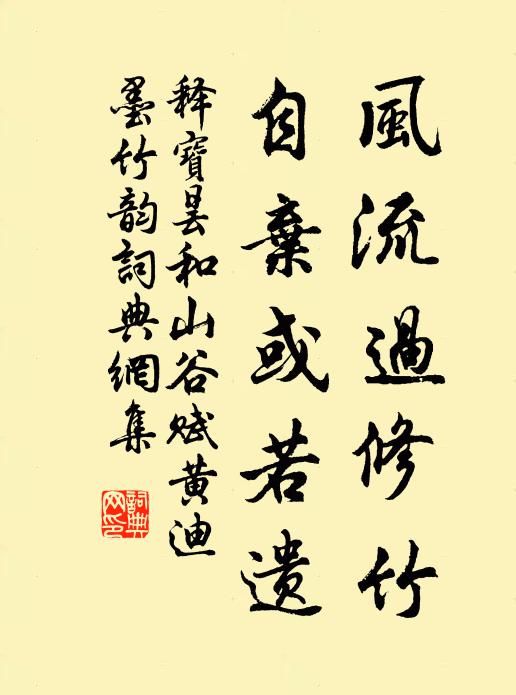 風流過修竹
自棄或若遺
释寶昙和山谷赋黄迪
墨竹韵詞典網集
詞典网印